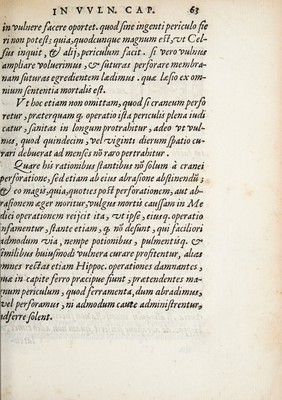 IN VVLN. CAP. 63
in vulnere facere oportet. quod sine ingenti periculo fie
ri non potest; quia, quodcunque magnum est, vt Cel-
sus inquit, & alij, periculum facit. si vero vulnus
ampliare voluerimus, & suturas perforare membra-
nam suturas egredientem lædimus. quæ læsio ex om-
nium sententia mortalis est.
Vt hoc etiam non omittam, quod si craneum perfo
retur, præterquam q. operatio ista periculis plena iudi
catur, sanitas in longum protrahitur, adeo vt vul-
nus, quod quindecim, vel viginti dierum spatio cu-
rari debuerat ad menses nō raro pertrahitur.
Quare his rationibus stantibus nō solum à cranei
perforatione, sed etiam ab eius abrasione abstinendū;
& eo magis, quia, quoties post perforationem, aut ab-
rasionem æger moritur, vulgus mortis caussam in Me
dici operationem reijcit ita, vt ipse, eiusq. operatio
infamentur, stante etiam, q. nō desunt, qui faciliori
admodum via, nempe potionibus, pulmentisq. &
similibus huiusmodi vulnera curare profitentur, alias
omnes rectas etiam Hippoc. operationes damnantes,
quæ in capite ferro præcipue fiunt, prætendentes ma-
num periculum, quod ferramenta, dum abradimus,
vel perforamus, ni admodum caute administrentur,
adferre solent.